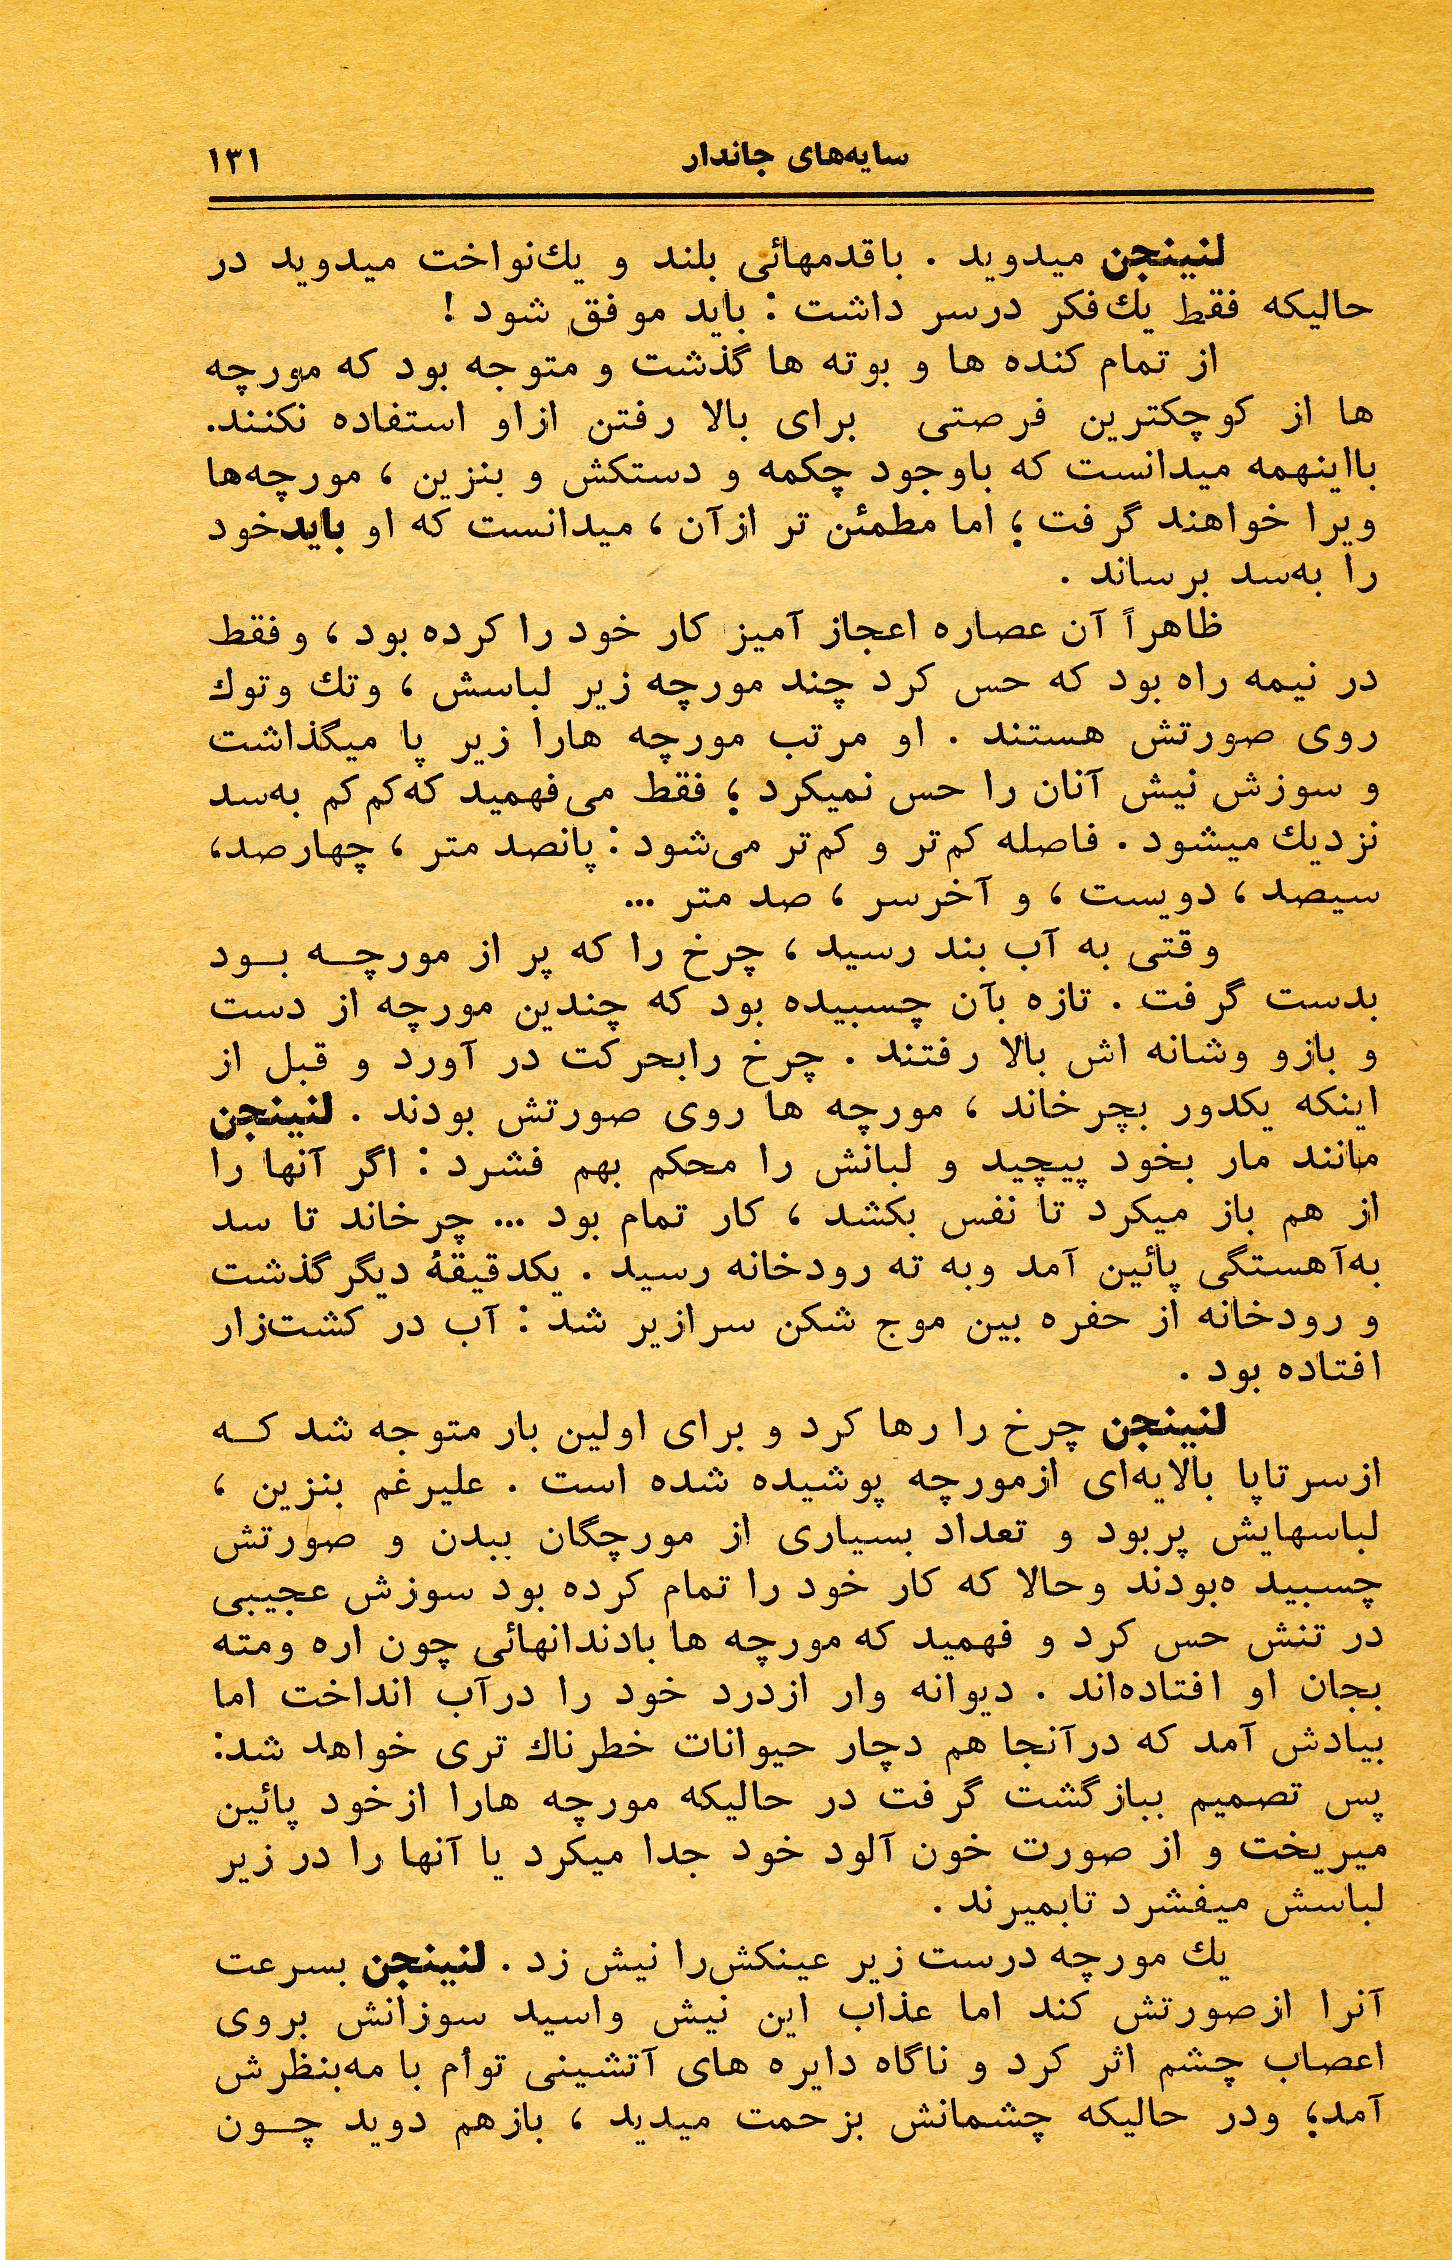 سایه‌های جاندار
۱۳۱
لنینجن میدوید . باقدمهائی بلند و یك‌نواخت میدوید در
حالیکه فقط یك‌فکر درسر داشت : باید موفق شود !
از تمام کنده ها و بوته ها گذشت و متوجه بود که مورچه
ها از کوچکترین فرصتی برای بالا رفتن ازاو استفاده نکنند.
بااینهمه میدانست که باوجود چکمه و دستکش و بنزین ، مورچه‌ها
ویرا خواهند گرفت ؛ اما مطمئن تر ازآن ، میدانست که او باید خود
را به‌سد برساند .
ظاهراً آن عصاره اعجاز آمیز کار خود را کرده بود ، و فقط
در نیمه راه بود که حس کرد چند مورچه زیر لباسش ، وتك وتوك
روی صورتش هستند . او مرتب مورچه هارا زیر پا میگذاشت
و سوزش نیش آنان را حس نمیکرد ؛ فقط می‌فهمید که‌کم‌کم به‌سد
نزدیك میشود . فاصله کم‌تر و کم‌تر می‌شود : پانصد متر ، چهارصد،
سیصد ، دویست ، و آخرسر ، صد متر ...
وقتی به آب بند رسید ، چرخ را که پر از مورچــه بــود
بدست گرفت . تازه بآن چسبیده بود که چندین مورچه از دست
و بازو وشانه اش بالا رفتند . چرخ رابحرکت در آورد و قبل از
اینکه یکدور بچرخاند ، مورچه ها روی صورتش بودند . لنینجن
مانند مار بخود پیچید و لبانش را محکم بهم فشرد : اگر آنها را
از هم باز میکرد تا نفس بکشد ، کار تمام بود ... چرخاند تا سد
به‌آهستگی پائین آمد وبه ته رودخانه رسید . یکدقیقهٔ دیگر گذشت
و رودخانه از حفره بین موج شکن سرازیر شد : آب در کشت‌زار
افتاده بود .
لنینجن چرخ را رها کرد و برای اولین بار متوجه شد کــه
ازسرتاپا بالایه‌ای ازمورچه پوشیده شده است . علیرغم بنزین ،
لباسهایش پربود و تعداد بسیاری از مورچگان ببدن و صورتش
چسبید ه‌بودند وحالا که کار خود را تمام کرده بود سوزش عجیبی
در تنش حس کرد و فهمید که مورچه ها بادندانهائی چون اره ومته
بجان او افتاده‌اند . دیوانه وار ازدرد خود را درآب انداخت اما
بیادش آمد که درآنجا هم دچار حیوانات خطرناك تری خواهد شد:
پس تصمیم ببازگشت گرفت در حالیکه مورچه هارا ازخود پائین
میریخت و از صورت خون آلود خود جدا میکرد یا آنها را در زیر
لباسش میفشرد تابمیرند .
یك مورچه درست زیر عینکش‌را نیش زد . لنینجن بسرعت
آنرا ازصورتش کند اما عذاب این نیش واسید سوزانش بروی
اعصاب چشم اثر کرد و ناگاه دایره های آتشینی توأم با مه‌بنظرش
آمد؛ ودر حالیکه چشمانش بزحمت میدید ، بازهم دوید چــون